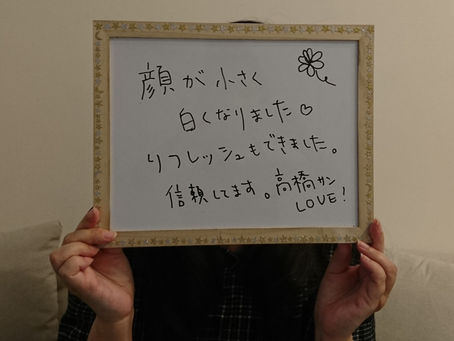 顔が小さく
白くなりました♡
リフレッシュもできました。
信頼してます。高橋サン
LOVE!